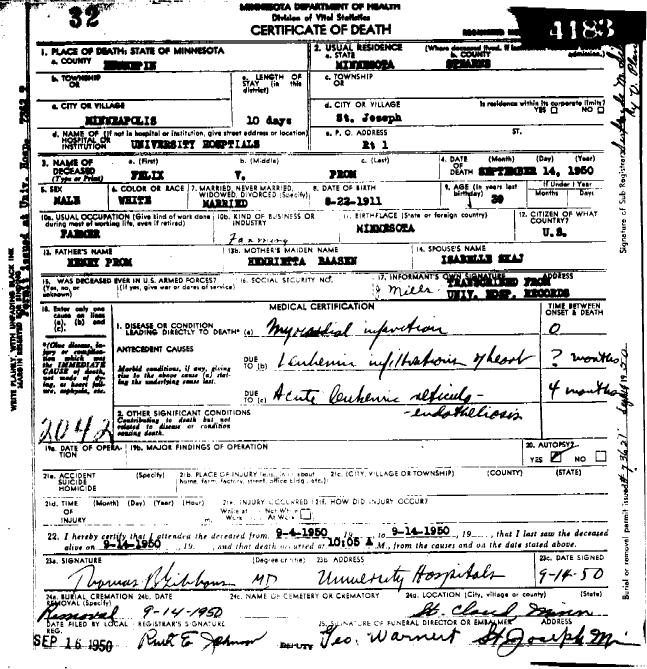 32
MINNESOTA DEPARTMENT OF HEALTH
Division of Vital Statistics
CERTIFICATE OF DEATH
4183
1. PLACE OF DEATH: STATE OF MINNESOTA
a. COUNTY HENNEPIN
2. USUAL RESIDENCE (Where deceased lived. If
a. STATE MINNESOTA
b. COUNTY STEARNS
b. TOWNSHIP OR
c. LENGTH OF STAY (in this district)
c. TOWNSHIP OR
c. CITY OR VILLAGE
MINNEAPOLIS 10 days
d. CITY OR VILLAGE
St. Joseph
Is residence within its corporate limits?
YES NO
d. NAME OF (If not in hospital or institution, give street address or location)
HOSPITAL OR INSTITUTION UNIVERSITY HOSPTIALS
e. P. O. ADDRESS ST.
Rt 1
3. NAME OF DECEASED (Type or Print)
a. (First) b. (Middle) c. (Last)
FELIX V. PROM
4. DATE OF DEATH (Month) (Day) (Year)
SEPTEMBER 14, 1950
5. SEX
MALE
6. COLOR OR RACE
WHITE
7. MARRIED, NEVER MARRIED, WIDOWED, DIVORCED (Specify)
MARRIED
8. DATE OF BIRTH
8-22-1911
9. AGE (In years last birthday)
39
If Under 1 Year
Months Days
10a. USUAL OCCUPATION (Give kind of work done during most of working life, even if retired)
FARMER
10b. KIND OF BUSINESS OR INDUSTRY
Farming
11. BIRTHPLACE (State or foreign country)
MINNESOTA
12. CITIZEN OF WHAT COUNTRY?
U.S.
13. FATHER'S NAME
HENRY PROM
13b. MOTHER'S MAIDEN NAME
HENRIETTA RAASEN
14. SPOUSE'S NAME
ISABELLE SKAJ
15. WAS DECEASED EVER IN U.S. ARMED FORCES?
(Yes, no, or unknown) (If yes, give war or dates of service)
16. SOCIAL SECURITY NO.
17. INFORMANT'S OWN SIGNATURE ADDRESS
TRANSCRIBED FROM
UNIV. HOSP. RECORDS
MEDICAL CERTIFICATION
TIME BETWEEN ONSET & DEATH
18. Enter only one cause on lines (a), (b) and (c).
1. DISEASE OR CONDITION LEADING DIRECTLY TO DEATH* (a) Myocardial infarction 0
ANTECEDENT CAUSES
Morbid conditions, if any, giving rise to the above cause (a) stating the underlying cause last.
DUE TO (b) Leukemic infiltrations of heart ? months
DUE TO (c) Acute leukemic reticulo-endotheliosis 4 months
2. OTHER SIGNIFICANT CONDITIONS
Contributing to death but not related to disease or condition causing death.
2042
19a. DATE OF OPERATION
19b. MAJOR FINDINGS OF OPERATION
20. AUTOPSY?
YES NO
21a. ACCIDENT SUICIDE HOMICIDE (Specify)
21b. PLACE OF INJURY
21c. (CITY, VILLAGE OR TOWNSHIP) (COUNTY) (STATE)
21d. TIME OF INJURY (Month) (Day) (Year) (Hour)
21e. INJURY OCCURRED
While at Work Not While At Work
21f. HOW DID INJURY OCCUR?
22. I hereby certify that I attended the deceased from 9-4-1950, 19 to 9-14-1950, 19, that I last saw the deceased
alive on 9-14-1950, 19, and that death occurred at 10:05 A M., from the causes and on the date stated above.
23a. SIGNATURE (Degree or title)
Thomas B Gibbons MD
23b. ADDRESS
University Hospitals
23c. DATE SIGNED
9-14-50
24a. BURIAL, CREMATION, REMOVAL (Specify)
Removal
24b. DATE
9-14-1950
24c. NAME OF CEMETERY OR CREMATORY
24d. LOCATION (City, village or county) (State)
St. Cloud Minn
DATE FILED BY LOCAL REG.
SEP 16 1950
REGISTRAR'S SIGNATURE
Ruth E Johnson
DEPUTY
25. SIGNATURE OF FUNERAL DIRECTOR OR EMBALMER ADDRESS
Geo. Warnert St. Joseph
WRITE PLAINLY WITH UNFADING BLACK INK
Signature of Sub Registrar
Burial or removal permit issued